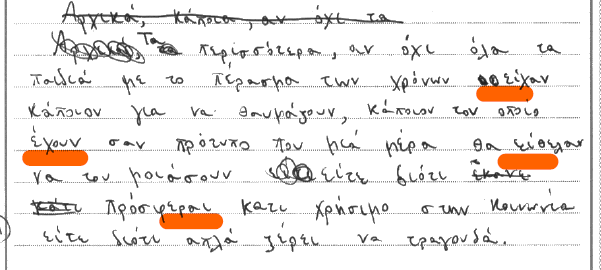 Αρχικά, κάποια, αν όχι τα
Τα περισσότερα, αν όχι όλα τα
παιδιά με το πέρασμα των χρόνων είχαν
κάποιον για να θαυμάζουν, κάποιον τον οποίο
έχουν σαν πρότυπο που μιά μέρα θα είθελαν
να του μοιάσουν είτε διότι έκανε
κάτι πρόσφεραι κατι χρήσιμο στην κοινωνία
είτε διότι απλά ξέρει να τραγουδά.